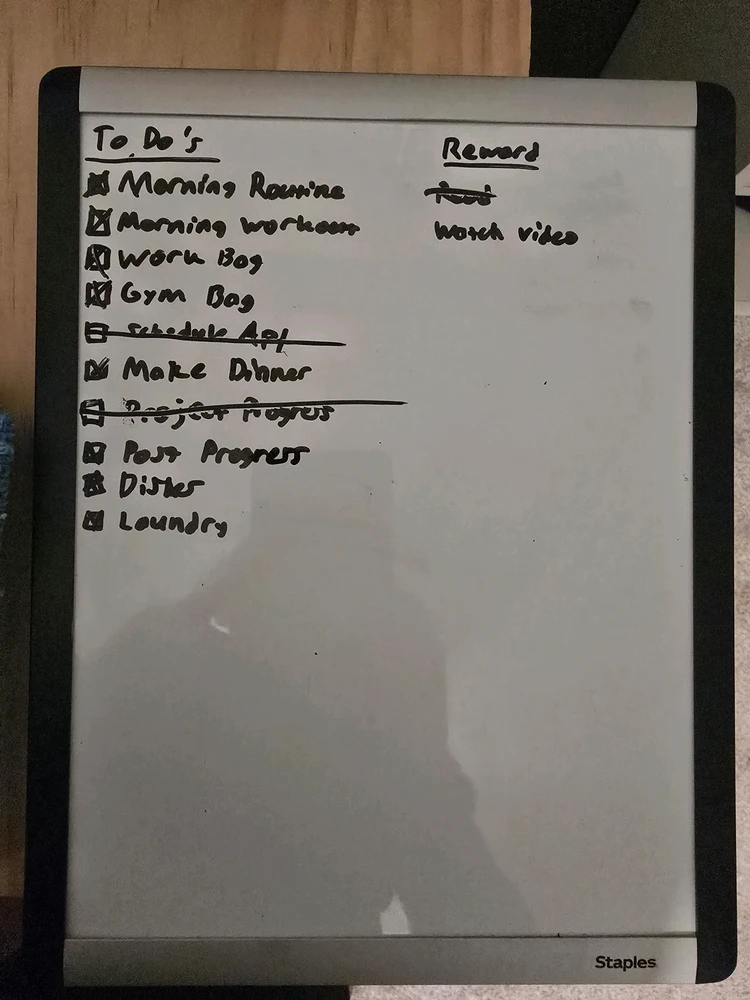 To Do's
Morning Routine
Morning workout
Work Bag
Gym Bag
Schedule Apt
Make Dinner
Project Progress
Post Progress
Dishes
Laundry
Reward
Watch video
Staples